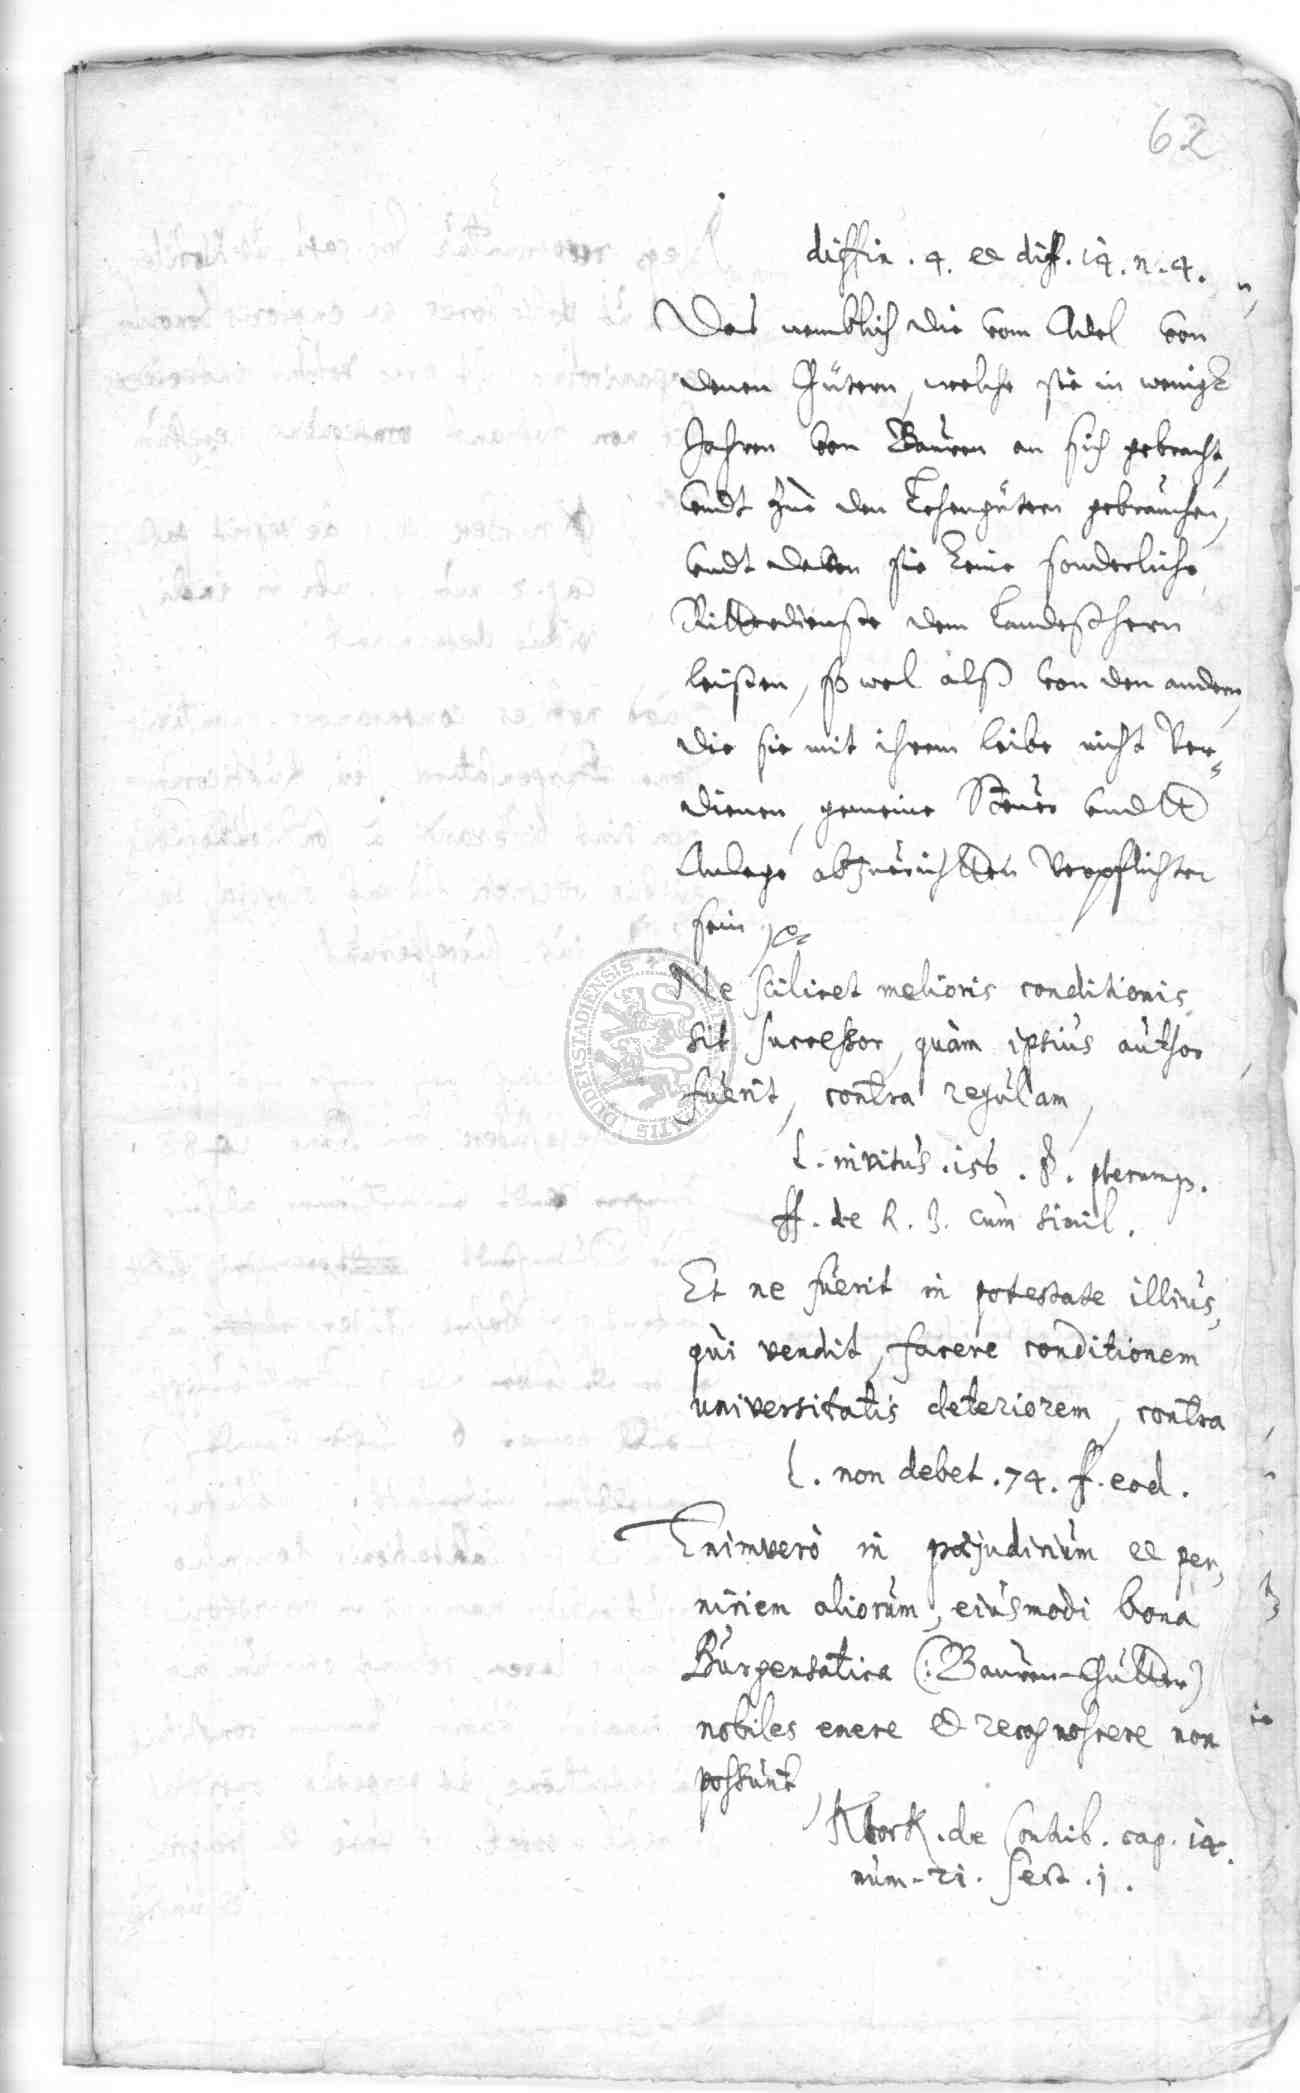 62
diffin. 4. et diff. 14. n. 4.
Das nemblich die vom Adel von
denen Gütern, welche sie in wenig
Jahren von Bauren an sich gebracht,
undt zue den Lehengütern gebrauchen,
undt davon sie keine sonderliche
Ritterdienste dem Landeßhern
leisten, so wol alß von den andern,
die sie mit ihrem leibe nicht ver=
dienen, gemeine Steuer undt
Anlage abzurichten verpflichtet
sein
Ne scilicet melioris conditionis
sit successor, quàm ipsius author
fuerit, contra regulam,
l. invitus. 156. §. plerumq.
ff. de R. J. cum simil.
Et ne fuerit in potestate illius,
qui vendit, facere conditionem
universitatis deteriorem, contra
l. non debet. 74. ff. eod.
Enimverò in praejudicium et per,
niciem aliorum, eiusmodi bona
Burgensatica (: Bauren-Gütter)
nobiles emere et recognoscere non
possunt,
Klock. de Contrib. cap. 14.
num. 21. Sect. j.
DUDERSTADIENSIS